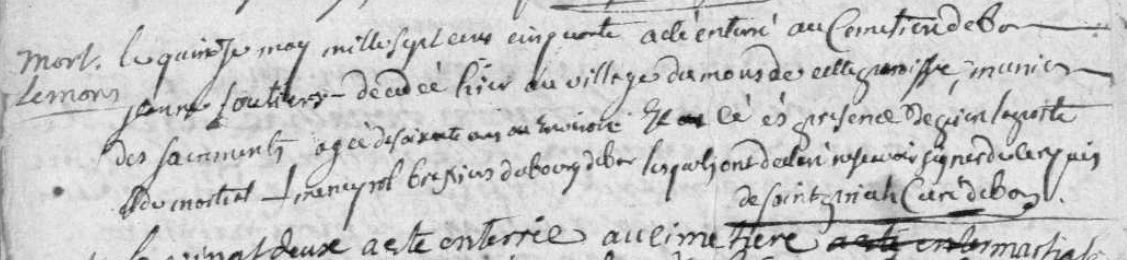 Mort. le quinze may mille sept cens cinquante a été enterré au Cemetiere de bar
Lemons jeanne soutiere decedée hier au village du mons de cette parroisse, munie
des sacrements agée de soixante ans ou environ en presence de pierre laporte
et de martial meneyrol du bourg de bar lesquels ont declaré ne scavoir signer de ce requis
de saint priech Curé de bar.
vingt deux a eté enterrée au cimetiere